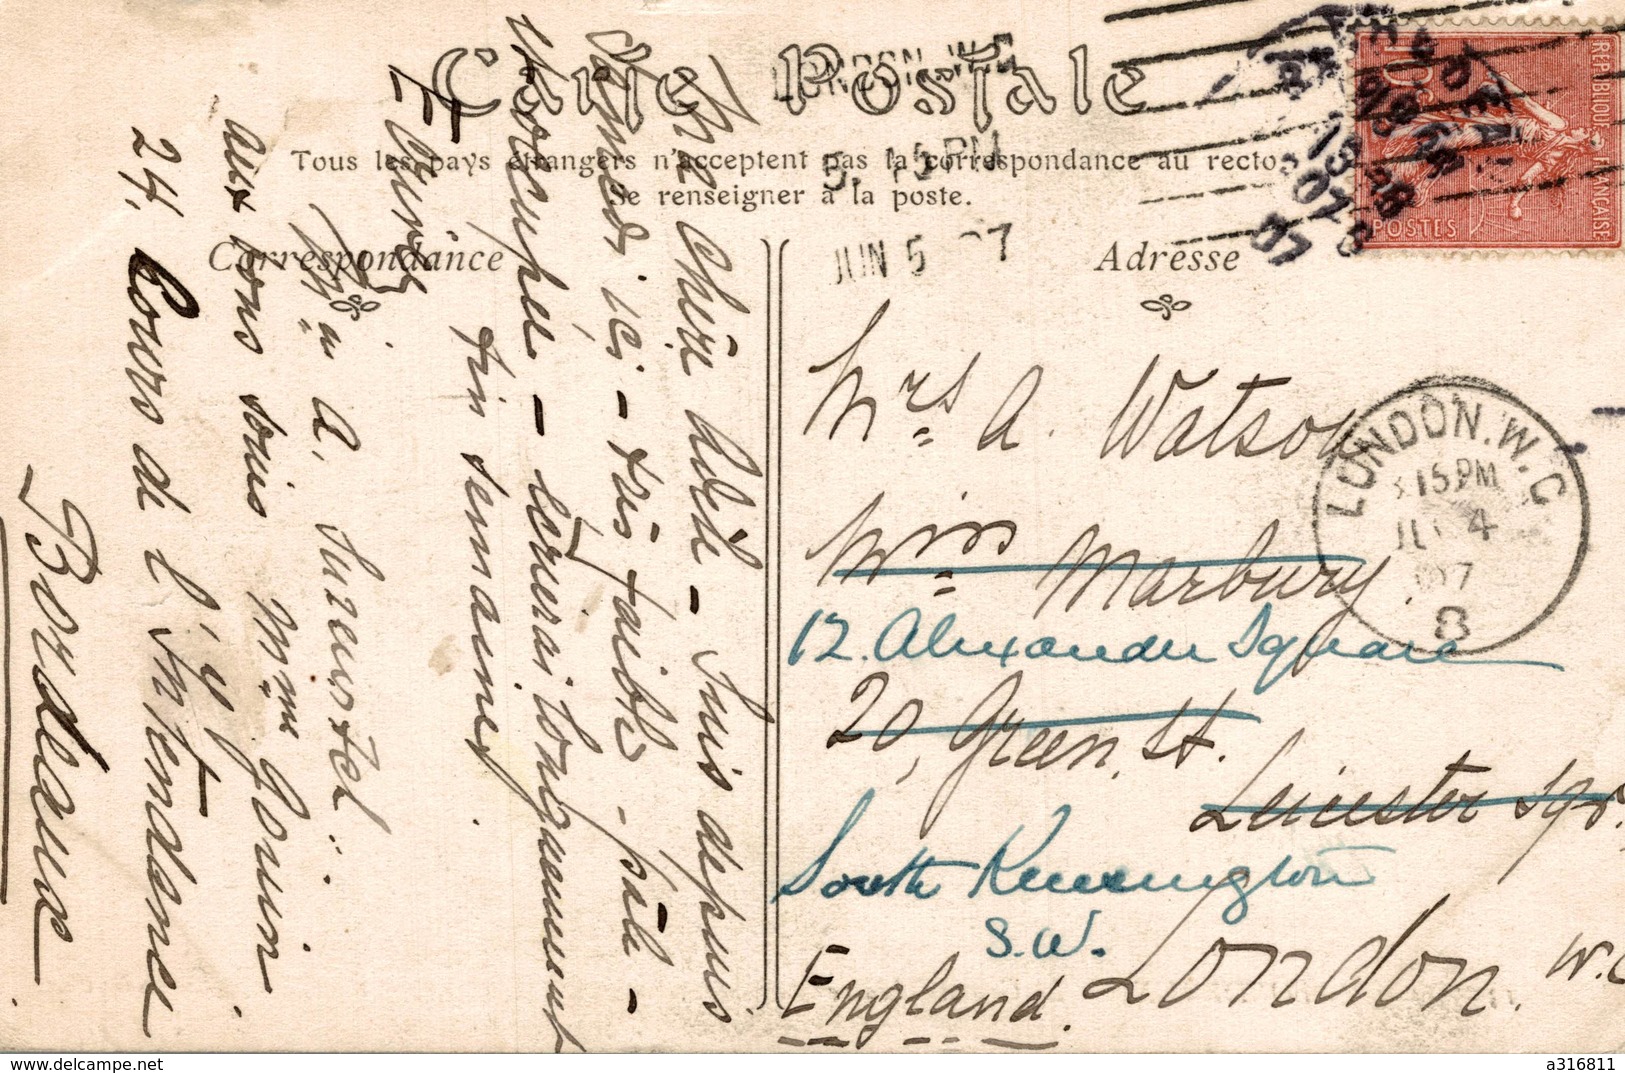 Carte Postale
LONDON. W.C
5. 15 PM
JUN 5 07
Tous les pays étrangers n'acceptent pas la correspondance au recto.
Se renseigner à la poste.
Correspondance
Adresse
REPUBLIQUE FRANÇAISE
10
POSTES
LONDON. W. C
15 PM
4
07
8
Mrs A. Watson
Miss Marbury.
12. Alexander Square
20, Green St.
Leicester Sqr.
South Kensington
S.W.
London. W.C
England.
Ma Chère Lili - Suis depuis
ici - très faible - pâle -
- écrirai longuement
fin semaine.
A. Suzanstel
aux bons soins Mme Gouin
24, Cours de l'Intendance
Bordeaux
www.delcampe.net
a316811